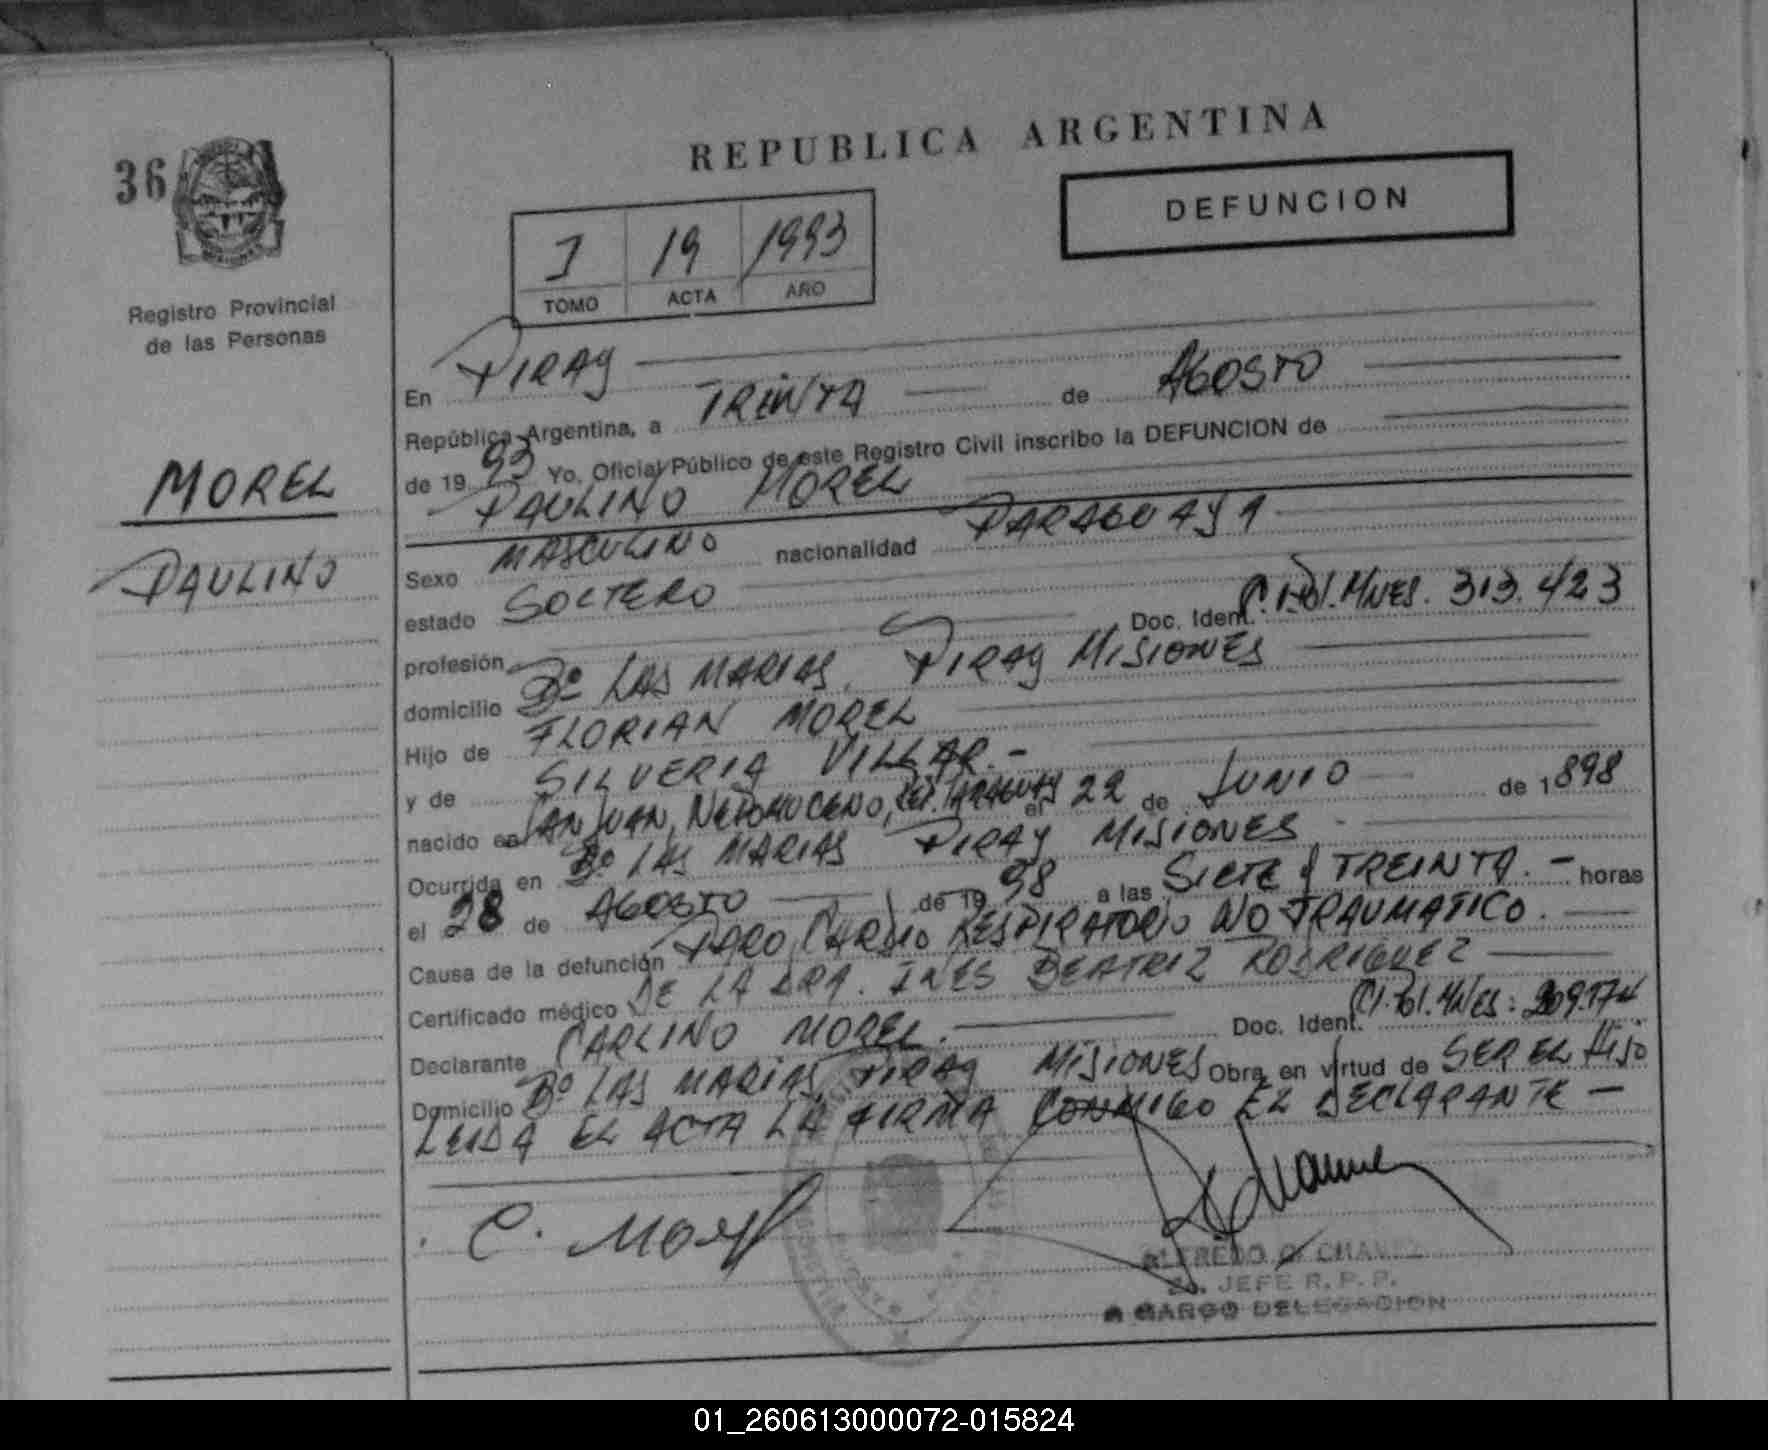 REPUBLICA ARGENTINA
36
DEFUNCION
I 19 1993
TOMO ACTA AÑO
Registro Provincial
de las Personas
MOREL
PAULINO
En PIRAY
República Argentina, a TREINTA de AGOSTO
de 1993 Yo, Oficial Público de este Registro Civil inscribo la DEFUNCION de
PAULINO MOREL
Sexo MASCULINO nacionalidad PARAGUAYA
estado SOLTERO Doc. Ident. C.I.Pol.Mnes. 313.423
profesión
domicilio Bº LAS MARIAS, PIRAY MISIONES
Hijo de FLORIAN MOREL
y de SILVERIA VILLAR.-
nacido en SAN JUAN, NEPOMUCENO, REP. PARAGUAY el 22 de JUNIO de 1898
Ocurrida en Bº LAS MARIAS PIRAY MISIONES
el 28 de AGOSTO de 1998 a las SIETE y TREINTA.- horas
Causa de la defunción PARO CARDIO RESPIRATORIO NO TRAUMATICO.
Certificado médico DE LA DRA. INES BEATRIZ RODRIGUEZ
Declarante CARLINO MOREL. Doc. Ident. C.I.Pol.Mnes:
Domicilio Bº LAS MARIAS, PIRAY MISIONES Obra en virtud de SER EL HIJO
LEIDA EL ACTA LA FIRMA CONMIGO EL DECLARANTE -
C. Morel
ALFREDO O. CHAVEZ
2o. JEFE R. P. P.
A CARGO DELEGACION
01_260613000072-015824